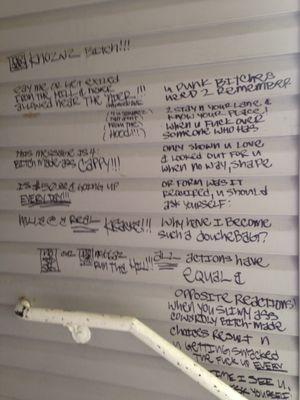 KNOWZ Bitch!!!
PAY ME OR GET EXILED
FROM THE HILL & NEVER
ALLOWED NEAR THE
FROM THE
HOOD!!!)
THIS MESSAGE IS 4
BITCH MADE ASS CAPPY!!!
IS $500 & GOING UP
EVERYDAY!!!
REAL
RUN THE HILL!!!
U PUNK BITCHES
NEED 2 REMEMBER
2 STAY N YOUR LANE &
KNOW YOUR PLACE!
WHEN U FUCK OVER
SOMEONE WHO HAS
ONLY SHOWN U LOVE
& LOOKED OUT FOR U
WHEN NO WAY, SHAPE
OR FORM WAS IT
REQUIRED, U SHOULD
ASK YOURSELF:
WHY HAVE I BECOME
SUCH A DOUCHEBAG?
ALL ACTIONS HAVE
EQUAL &
OPPOSITE REACTIONS!
WHEN YOU SLIMY ASS
COWARDLY BITCH-MADE
CHOICES RESULT N
U GETTING SMACKED
THE FUCK UP EVERY
TIME I SEE U,
ASK YOURSELF